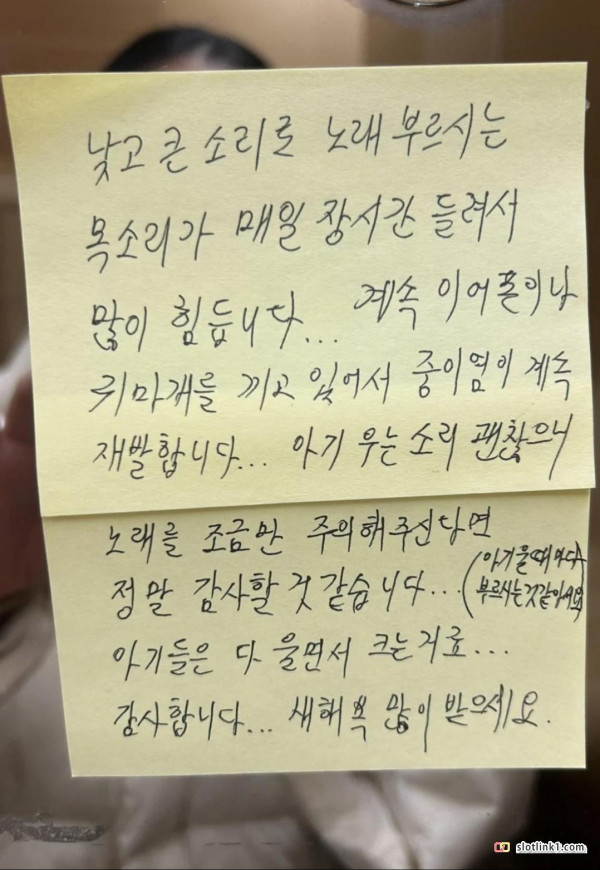 낮고 큰 소리로 노래 부르시는
목소리가 매일 장시간 들려서
많이 힘듭니다... 계속 이어폰이나
귀마개를 끼고 있어서 중이염이 계속
재발합니다... 아기 우는 소리 괜찮으니
노래를 조금만 주의해주신다면
정말 감사할 것 같습니다... (아기 울때마다
부르시는것같아서요)
아기들은 다 울면서 크는거죠...
감사합니다... 새해 복 많이 받으세요.
slotlink1.com